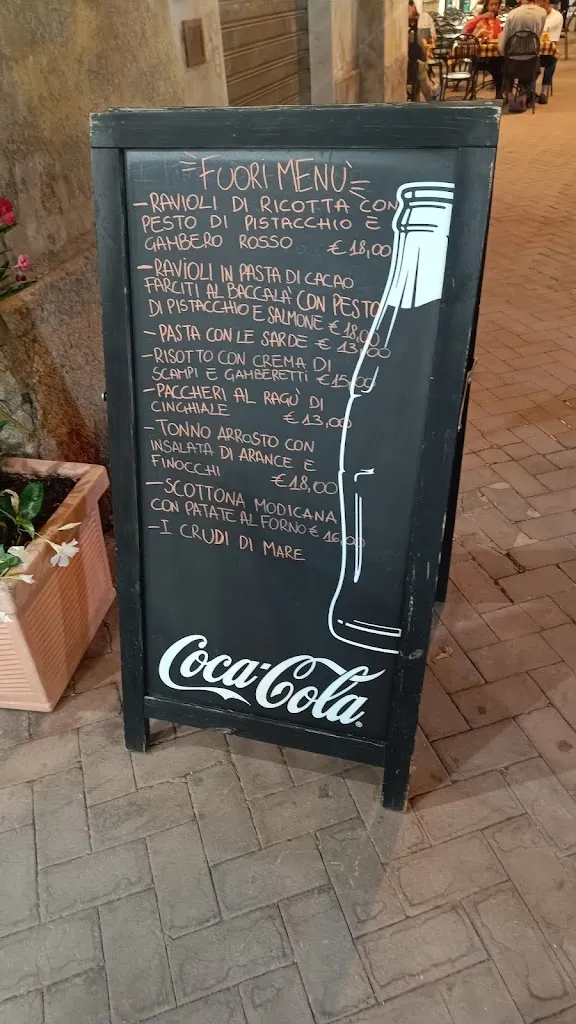 FUORI MENÙ
- RAVIOLI DI RICOTTA CON
PESTO DI PISTACCHIO E
GAMBERO ROSSO € 18,00
- RAVIOLI IN PASTA DI CACAO
FARCITI AL BACCALÀ CON PESTO
DI PISTACCHIO E SALMONE € 18,00
- PASTA CON LE SARDE € 13,00
- RISOTTO CON CREMA DI
SCAMPI E GAMBERETTI € 15,00
- PACCHERI AL RAGÙ DI
CINGHIALE € 13,00
- TONNO ARROSTO CON
INSALATA DI ARANCE E
FINOCCHI € 18,00
- SCOTTONA MODICANA
CON PATATE AL FORNO € 16,00
- I CRUDI DI MARE
Coca-Cola®